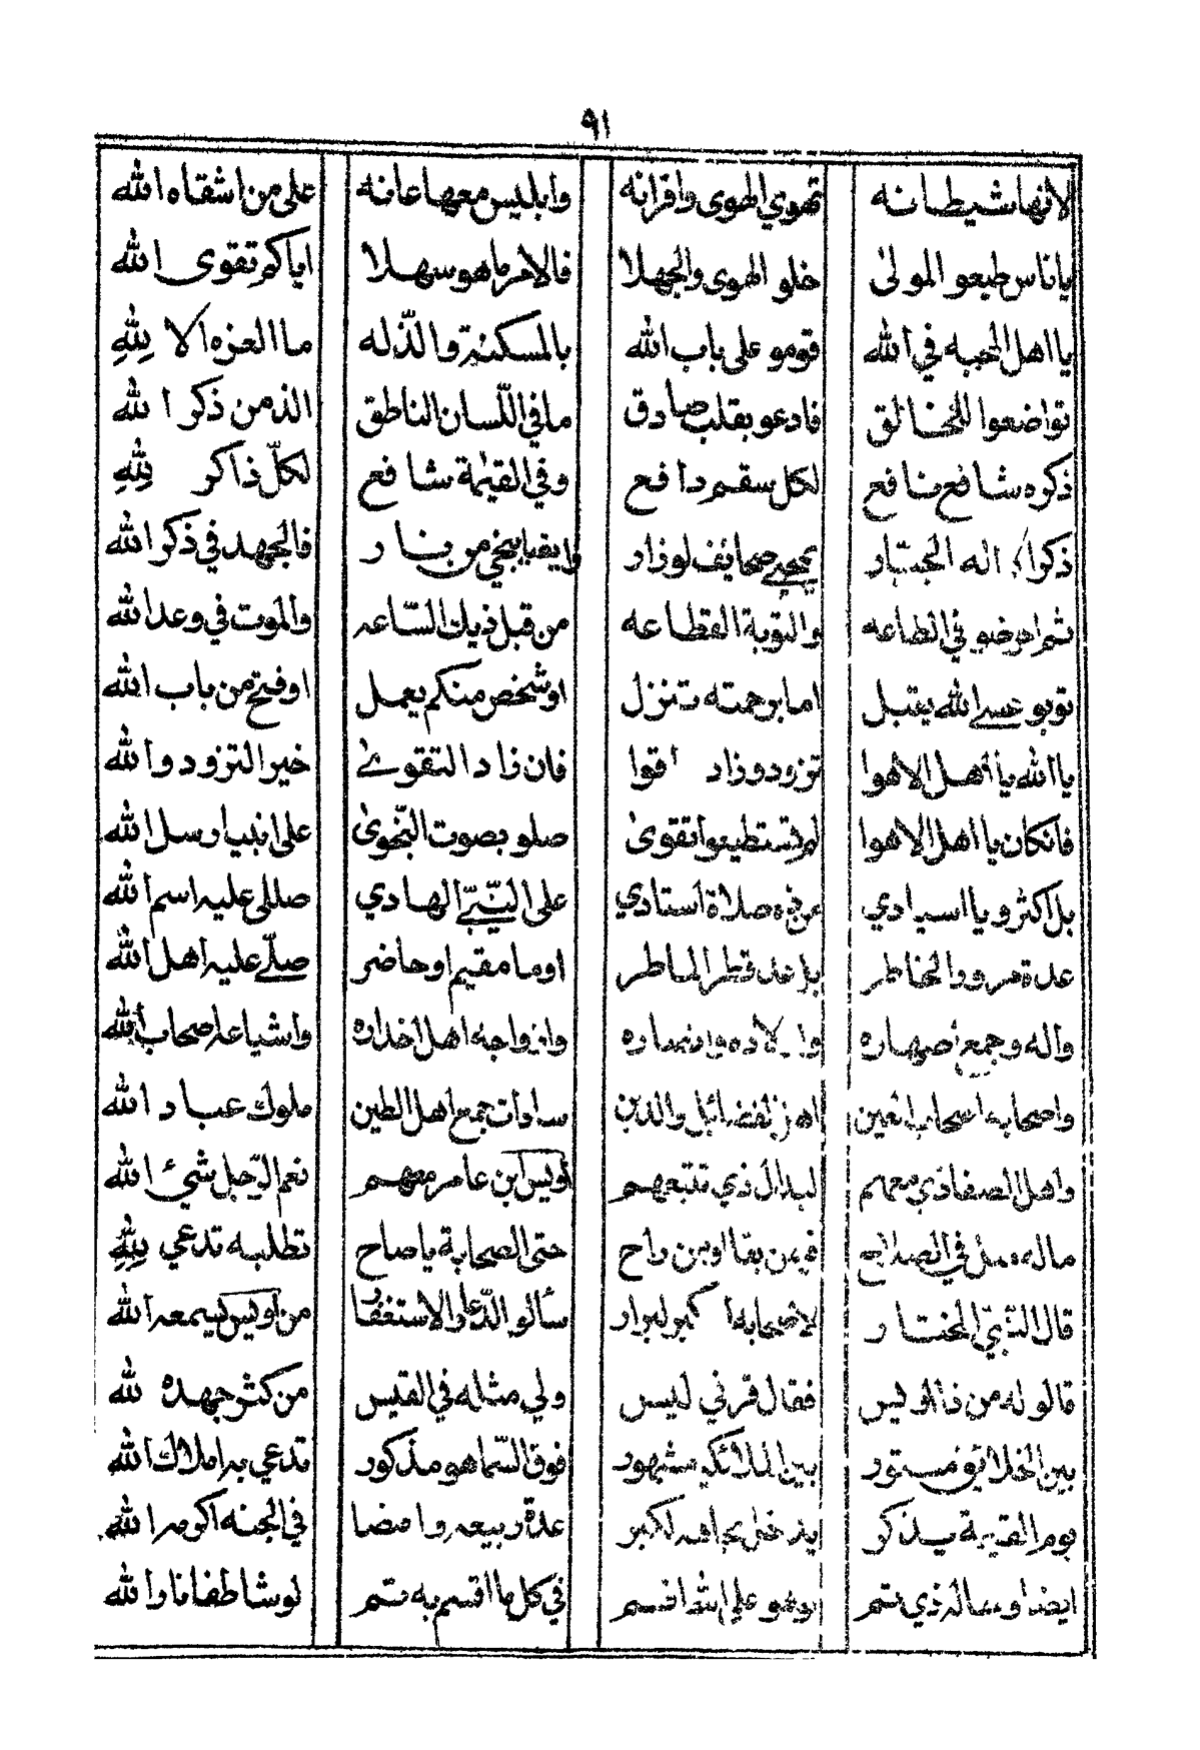 ٩١
لانها شيطانه تهوي الهوى واقرانه وابليس معها عانه على من اشقاه الله
ياناس طيعو المولىٰ خلو الهوى والجهلا فالامر ماهو سهلا اياكم تقوى الله
يا اهل المحبه في الله قومو على باب الله بالمسكنة والذّله ما العزه الا لِلّٰهِ
تواضعوا للخالق فادعو بقلب صادق ما في اللّسان الناطق الذ من ذكر الله
ذكره شافع نافع لكل سقم دافع وفي القيٰمة شافع لكلّ ذاكر لِلّٰهِ
ذكر اله الجبار يمحي صحائف لوزار وايضا ينجي من نار فالجهد في ذكر الله
في الطاعه والتوبة القطاعه من قبل ذيك السّاعه والموت في وعد الله
توبو عسى الله يقبل اما برحمته تنزل او شخص منكم يعمل او فتح من باب الله
يا الله يا أهل الاهوا تزودو زاد اقوا فان زاد التقوىٰ خير التزود والله
فانكان يا اهل الاهوا لم تستطيعوا تقوىٰ صلو بصوت النّجوىٰ على انبيا رسل الله
بل اكثرو يا اسيادي صلاة استادي على النّبيّ الهادي صللى عليه اسم الله
عدة مرور الخاطر قطر الماطر او ما مقيم او حاضر صلّى عليه اهل الله
واله وجمع أصهاره وازواجه اهل اخداره واشياعه اصحاب الله
واصحابه اصحاب لفضائل والدين سادات جمع اهل الطين ملوك عباد الله
واهل الصفا ذي معهم لبدال ذي تتبعهم أويس ابن عامر معهم نعم الرّجل شيء الله
ماله مثل في الصلاح فيمن بقا او من راح حتى الصحابة يا صاح تطلبه تدعي لِلّٰهِ
قال النّبيّ المختار لاصحابه لبرار سألو الدّعا والاستغفار من أويس يسمعه الله
قالو له من ذا اويس فقال قرني ليس ولي مثله في القيس من كثر جهده لله
بين الخلائق مستور بين الملائكه مشهور فوق السّما هو مذكور تدعي به املاك الله
يوم القيمة يذكر يدخل لكبر عدة ربيعه وامضا في الجنه اكرمه الله
ايضا ذي تم على الله اقسم في كل ما اقسم به تم لو شا طفا نار الله